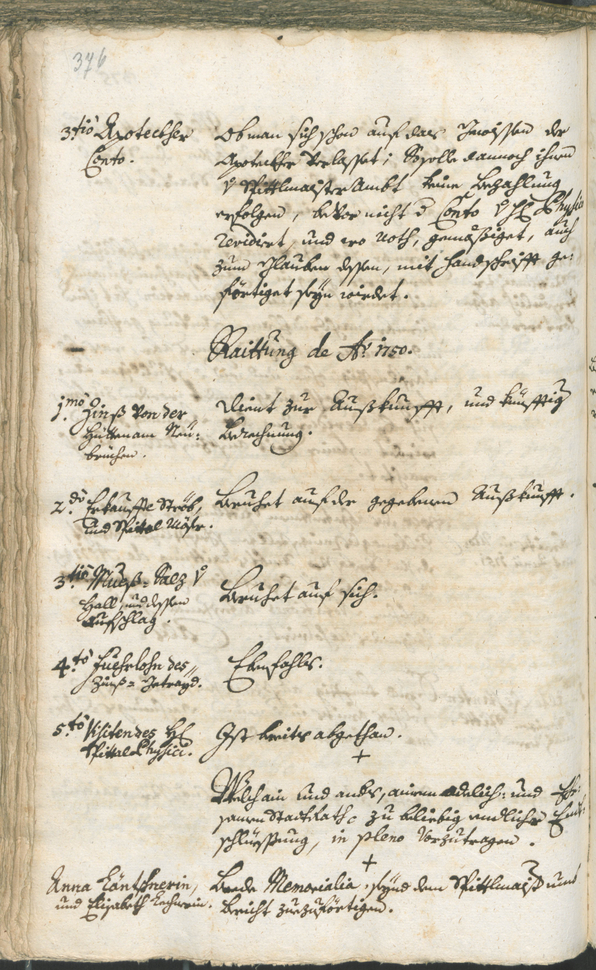 376
3tio Apoteckher
Conto.
Ob man sich schon auf das Gewissen der
Apotecker verlasset; So solle dannoch ihnen
v Spittlmaister Ambt keine Bezahlung
erfolgen, bevor nicht d Conto v H Physico
revidirt, und wo noth, gemäßiget, auch
zum Glauben dessen, mit handschrifft ge:
förtiget seyn wirdet.
Raittung de Aõ 1750.
1mo Zinß von der
Hütten am Neu:
bruchen.
Dient zur Außkunfft, und künfftig
Berechnung.
2do Erkauffte Ströb,
und Spittal
Beruhet auf der gegebenen Außkunfft.
3tio Mueß-Salz v
Hall, und dessen
Aufschlag.
Beruhet auf sich.
4to Fuehrlohn des
Zinß-Getrayd.
Ebenfahls.
5to Visiten des H
Spittal Physici.
Ist bereits abgethan.
+
Welch ain und anders, ainem adelich: und Ehr:
samen Stadt Rath zu beliebig endlicher Ent:
schlüssung, in pleno vorzutragen.
+
Anna
und Elisabeth
Beede Memorialia, seynd dem Spittlmaister umb
Bericht zuezuförtigen.